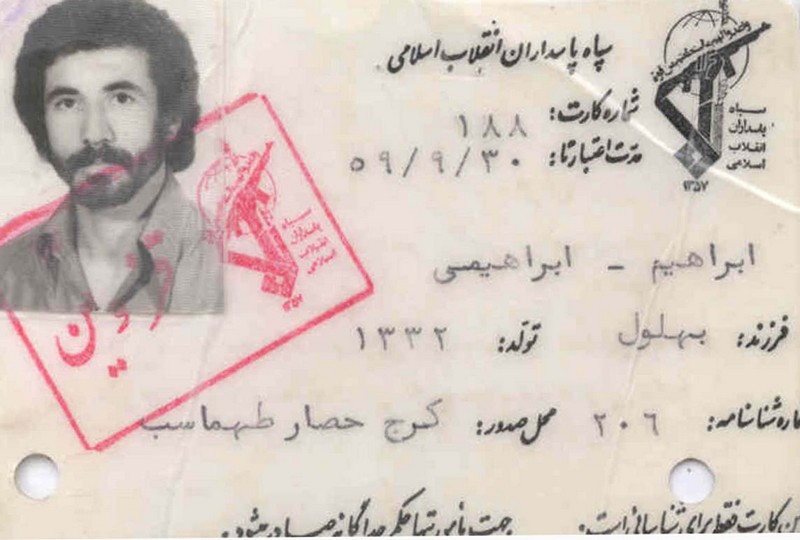 سپاه پاسداران انقلاب اسلامی
شماره کارت: ۱۸۸
مدت اعتبار تا: ۵۹/۹/۳۰
سپاه
پاسداران
انقلاب
اسلامی
۱۳۵۷
ابراهیم - ابراهیمی
فرزند: بهلول تولد: ۱۳۳۲
شماره شناسنامه: ۲۰۶ محل صدور: کرج حصار طهماسب
این کارت فقط برای شناسائی است. جهت مأموریتها حکم جداگانه صادر میشود.
سپاه
پاسداران
انقلاب
اسلامی
۱۳۵۷
قزوین